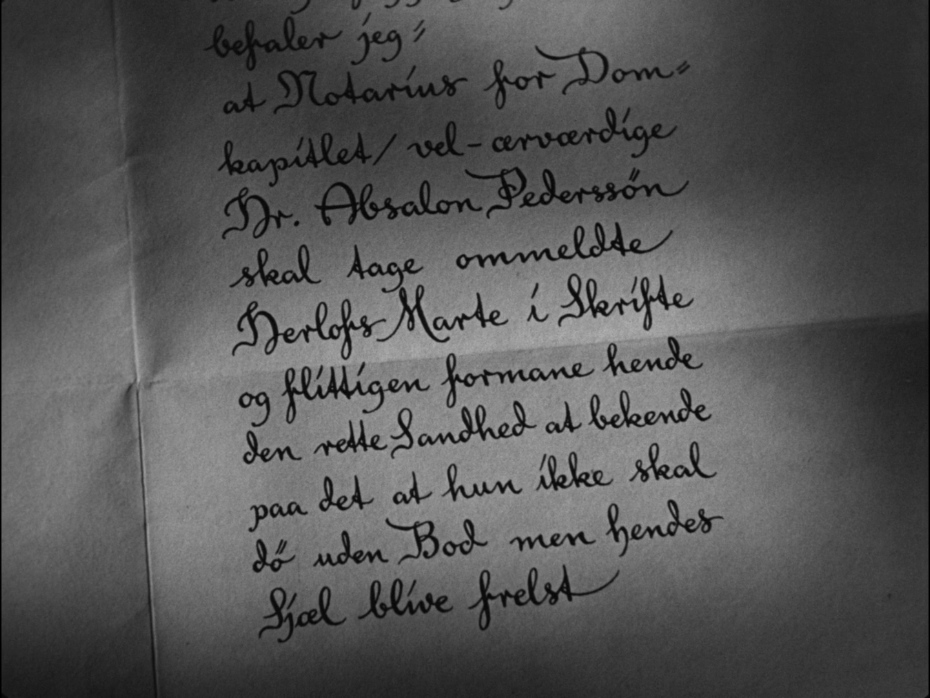 befaler jeg⸗
at Notarius for Dom⸗
kapitlet/ vel-ærværdige
Hr. Absalon Pederssőn
skal tage ommeldte
Herlofs Marte i Skrifte
og flittigen formane hende
den rette Sandhed at bekende
paa det at hun ikke skal
dő uden Bod men hendes
Sjæl blive frelst